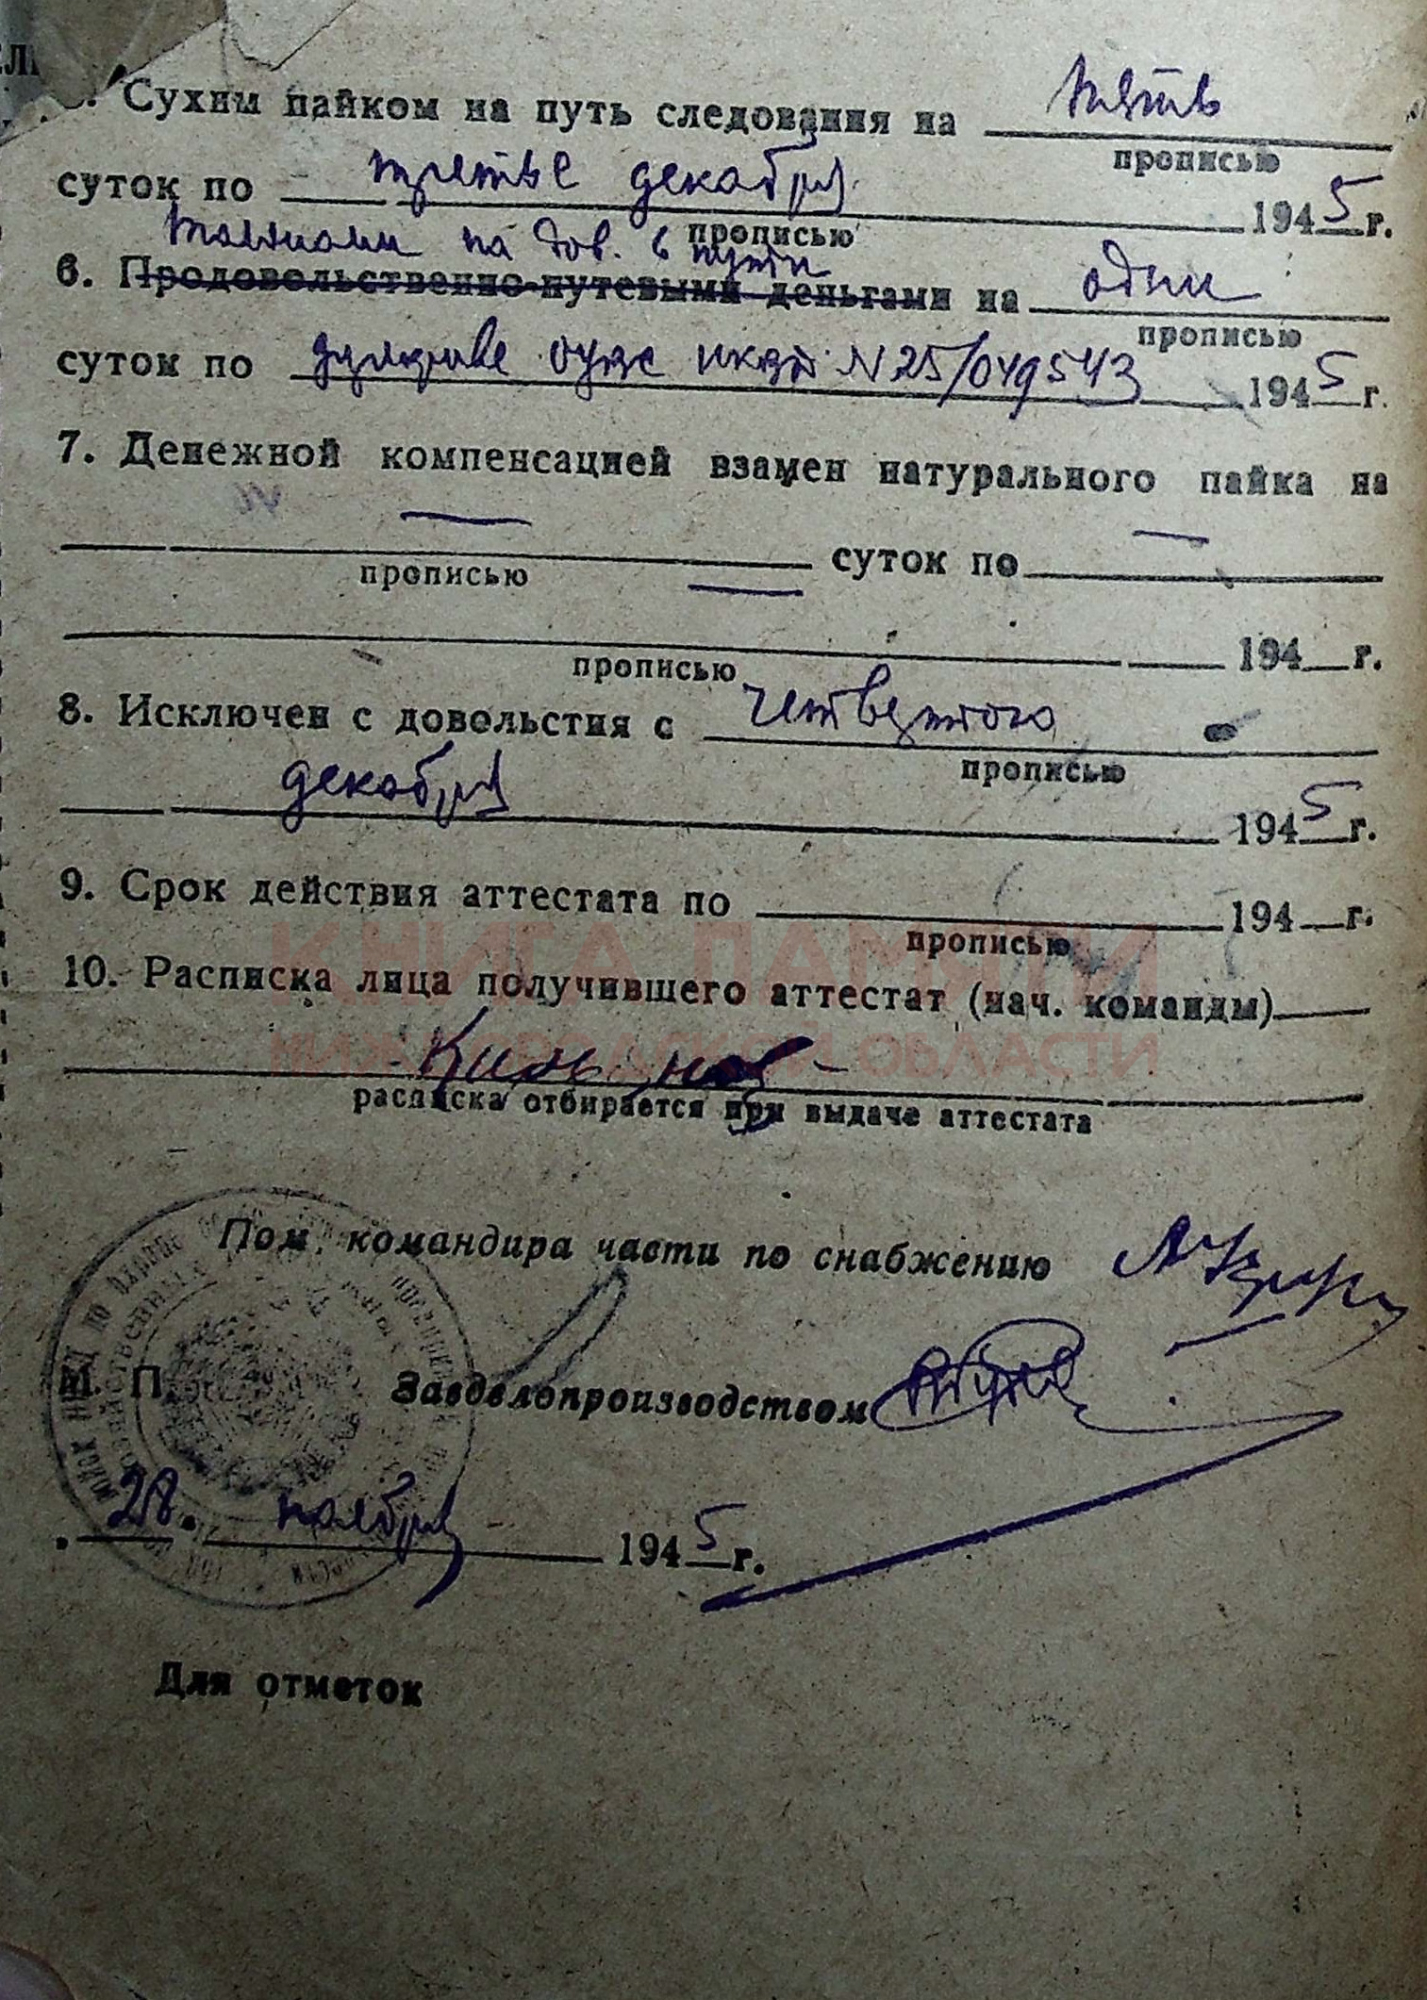 Сухим пайком на путь следования на пять
прописью
суток по третье декабря 1945 г.
прописью
талонами на дов. в пути
6. Продовольственно-путевыми деньгами на одни
прописью
суток по N 25/049543 1945 г.
7. Денежной компенсацией взамен натурального пайка на
— суток по —
прописью
— 194 г.
прописью
8. Исключен с довольстия с четвертого
прописью
декабря 1945 г.
9. Срок действия аттестата по 194 г.
прописью
10. Расписка лица получившего аттестат (нач. команды)
расписка отбирается при выдаче аттестата
КНИГА ПАМЯТИ
НИЖЕГОРОДСКОЙ ОБЛАСТИ
Пом. командира части по снабжению
М. П. Завделопроизводством
28. ноября 1945 г.
Для отметок